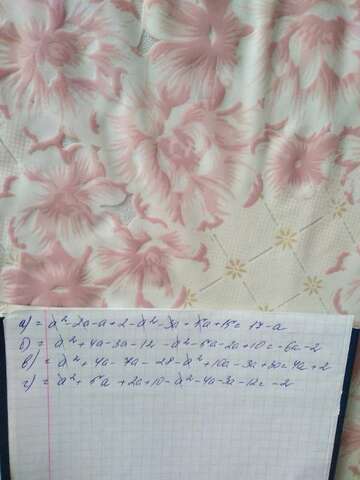 а) = a² - 2a - a + 2 - a² - 3a + 5a + 15 = 17 - a
б) = a² + 4a - 3a - 12 - a² - 5a - 2a + 10 = -6a - 2
в) = a² + 4a - 7a - 28 - a² + 10a - 3a + 30 = 4a + 2
г) = a² + 5a + 2a + 10 - a² - 4a - 3a - 12 = -2